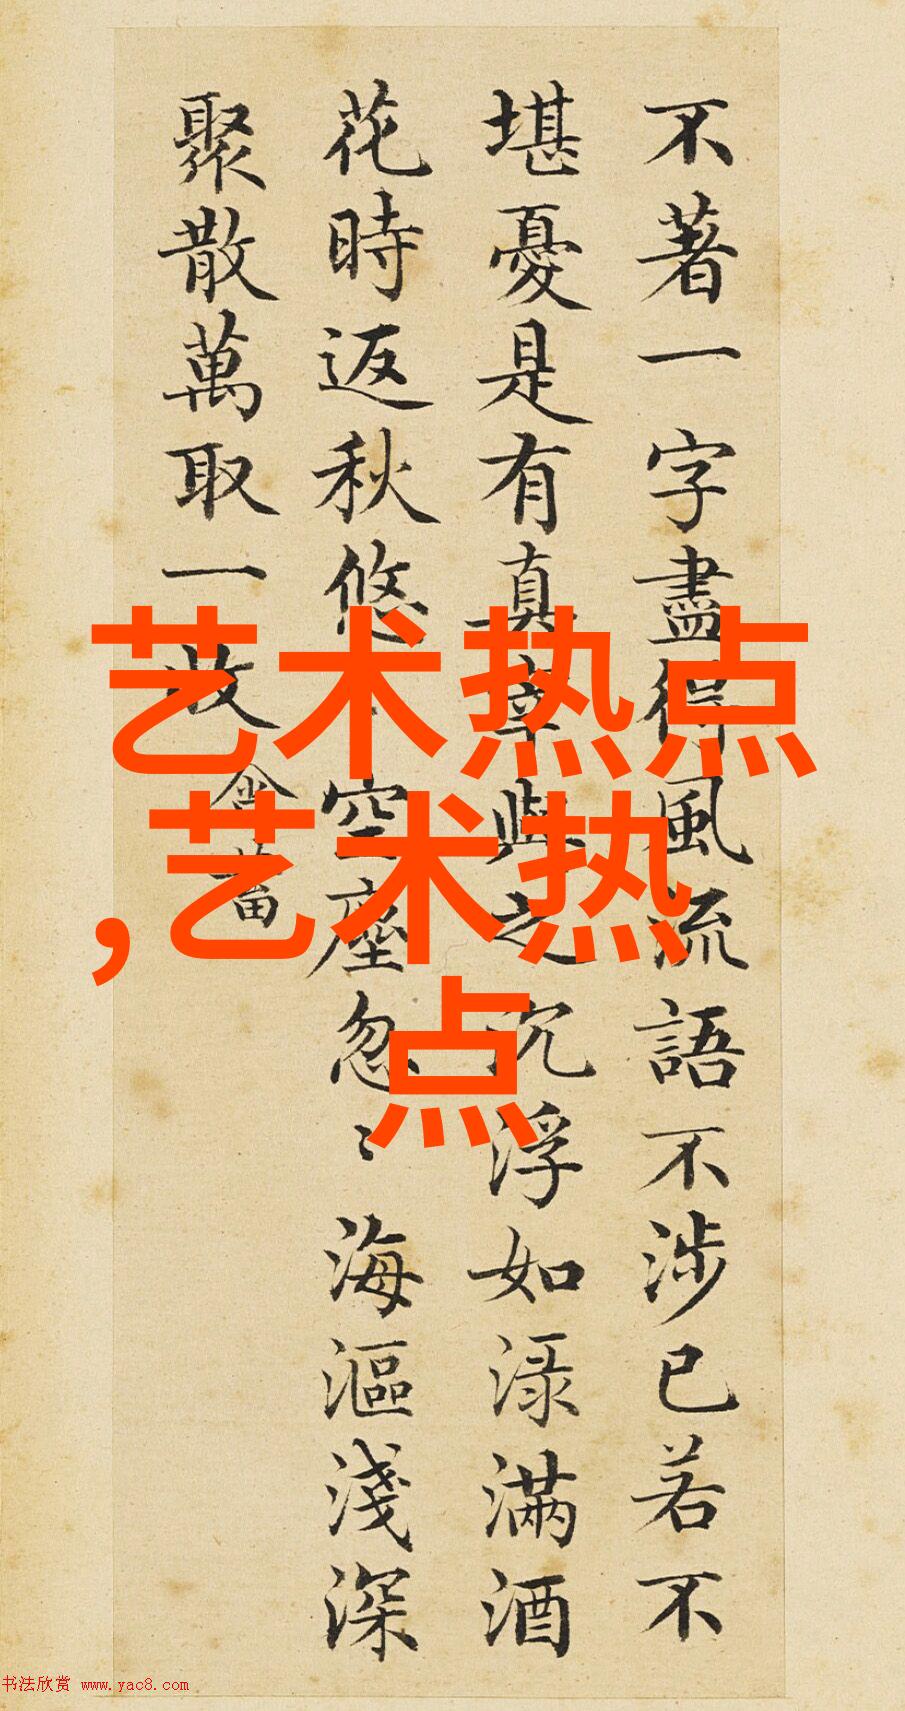 不著一字盡得風流語不涉已若不
堪憂是有真宰與之沉浮如淥滿酒
花時返秋悠〻空座忽〻海漚淺深
聚散萬取一收
艺术热点
,艺术热
点
书法欣赏 www.yac8.com